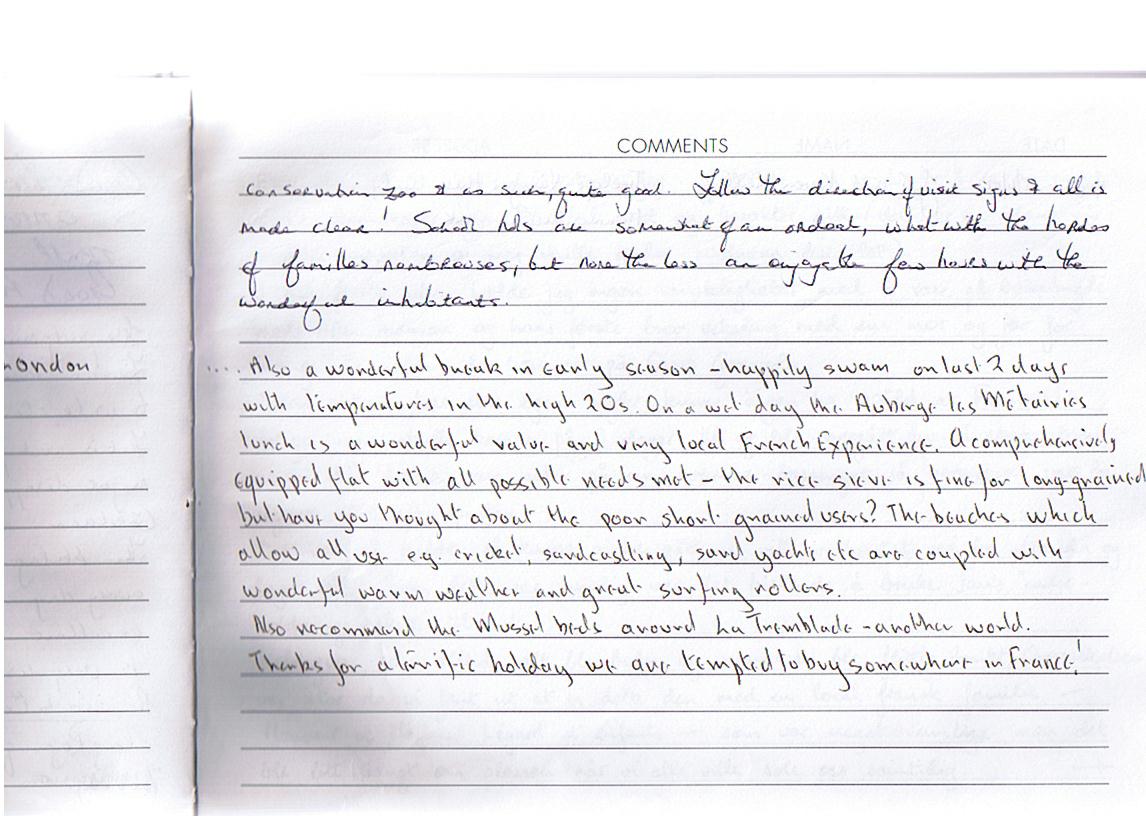 COMMENTS
conservation zoo & as such, quite good. Follow the direction of visit signs & all is
made clear! School hols are somewhat of an ordeal, what with the hordes
of familles nombreuses, but none the less an enjoyable few hours with the
wonderful inhabitants.
london
.... Also a wonderful break in early season - happily swam on last 2 days
with temperatures in the high 20s. On a wet day the Auberge les Métairies
lunch is a wonderful value and very local French Experience. A comprehensively
equipped flat with all possible needs met - the rice sieve is fine for long-grained
but have you thought about the poor short grained users? The beaches which
allow all use e.g. cricket, sandcastling, sand yachts etc are coupled with
wonderful warm weather and great surfing rollers.
Also recommend the Mussel beds around La Tremblade - another world.
Thanks for a terrific holiday, we are tempted to buy somewhere in France!